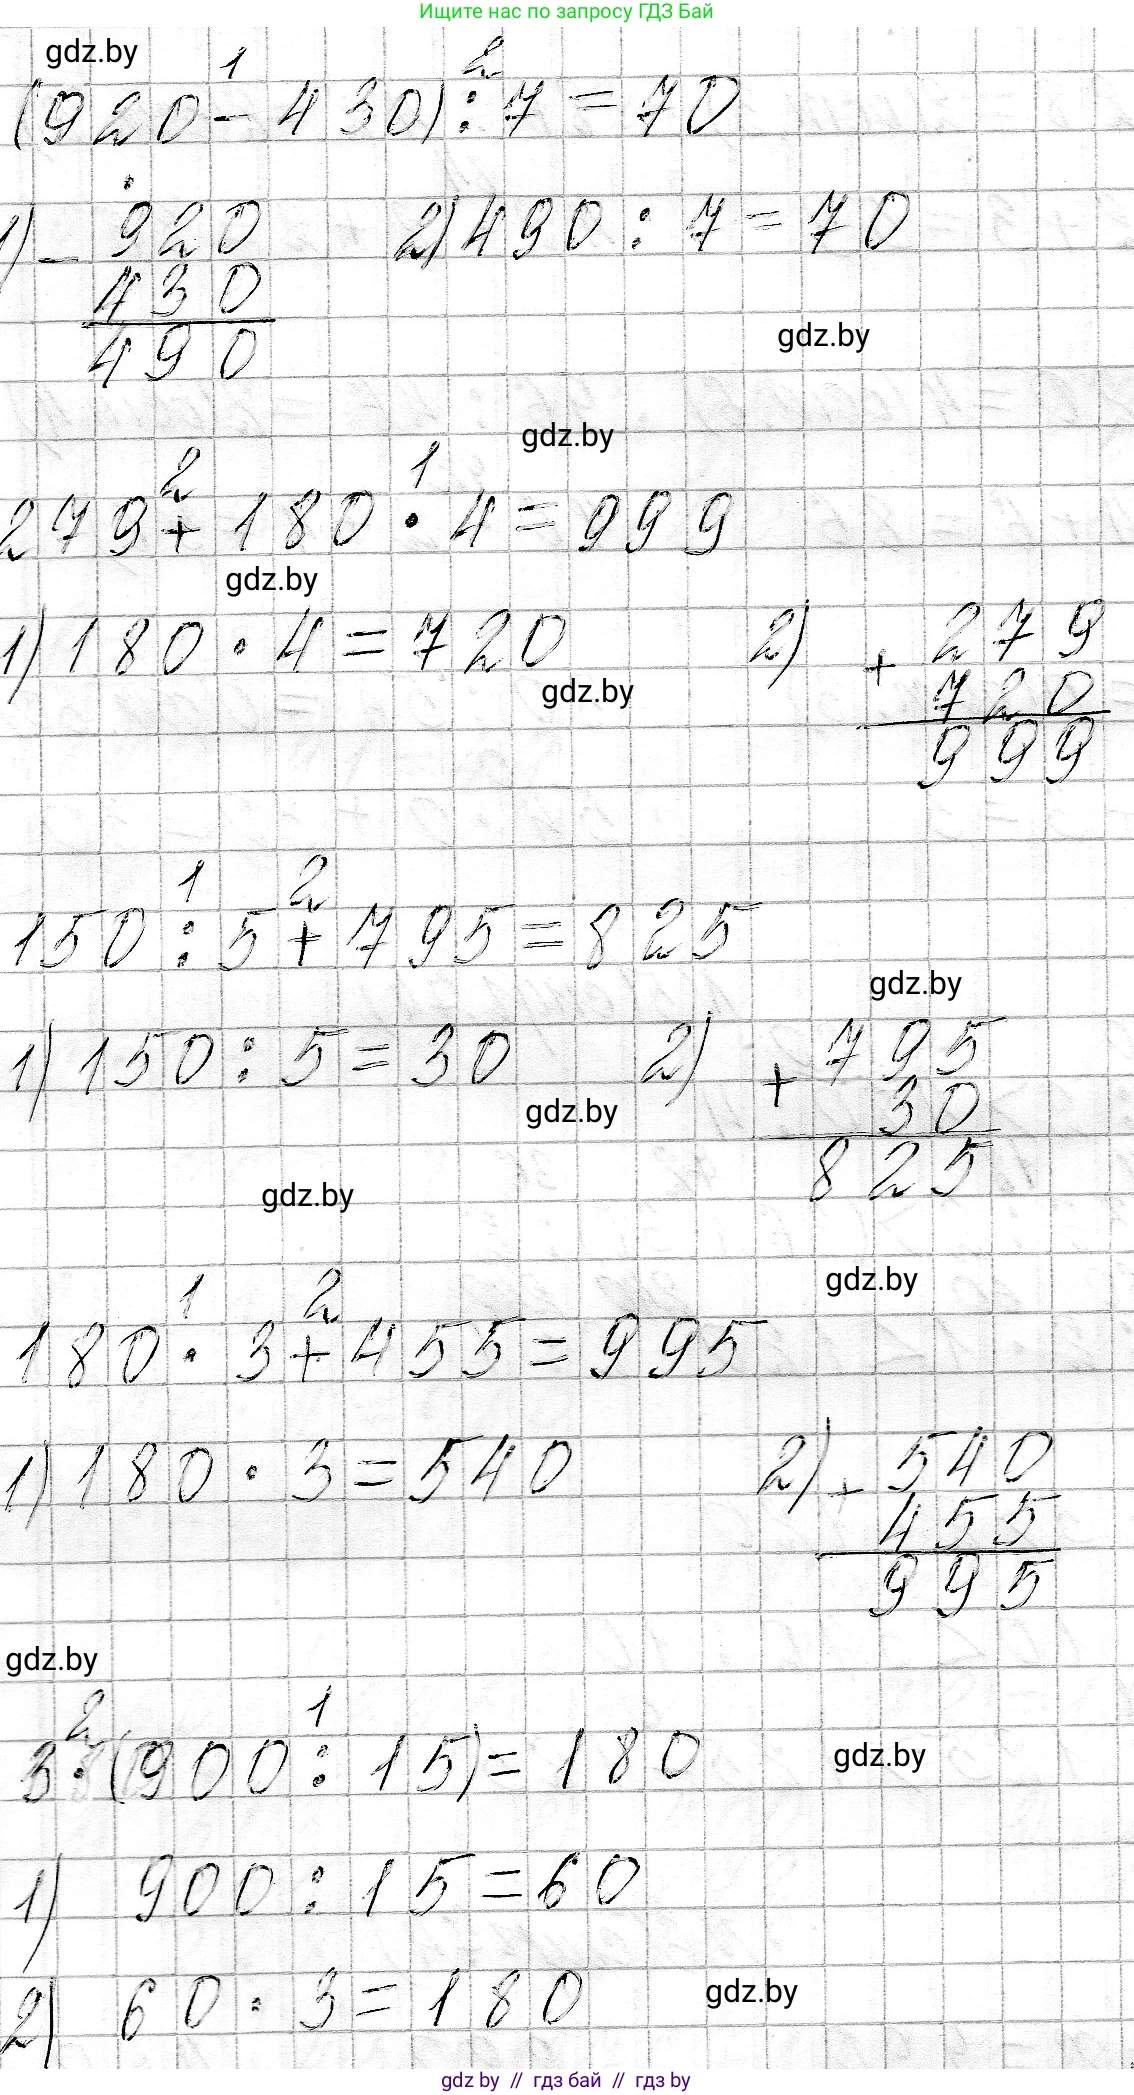 Ищите нас по запросу ГДЗ Бай
gdz.by
1 2
(920 - 430) : 7 = 70
1) - 920 2) 490 : 7 = 70
430
490
gdz.by
gdz.by
2 1
279 + 180 · 4 = 999
gdz.by
1) 180 · 4 = 720 2) + 279
gdz.by
720
999
1 2
150 : 5 + 795 = 825
gdz.by
1) 150 : 5 = 30 2) + 795
gdz.by
30
825
gdz.by
gdz.by
1 2
180 · 3 + 455 = 995
1) 180 · 3 = 540 2) + 540
455
995
gdz.by
2 1
3 · (900 : 15) = 180
gdz.by
1) 900 : 15 = 60
2) 60 · 3 = 180
gdz.by
gdz by // гдз бай // гдз by